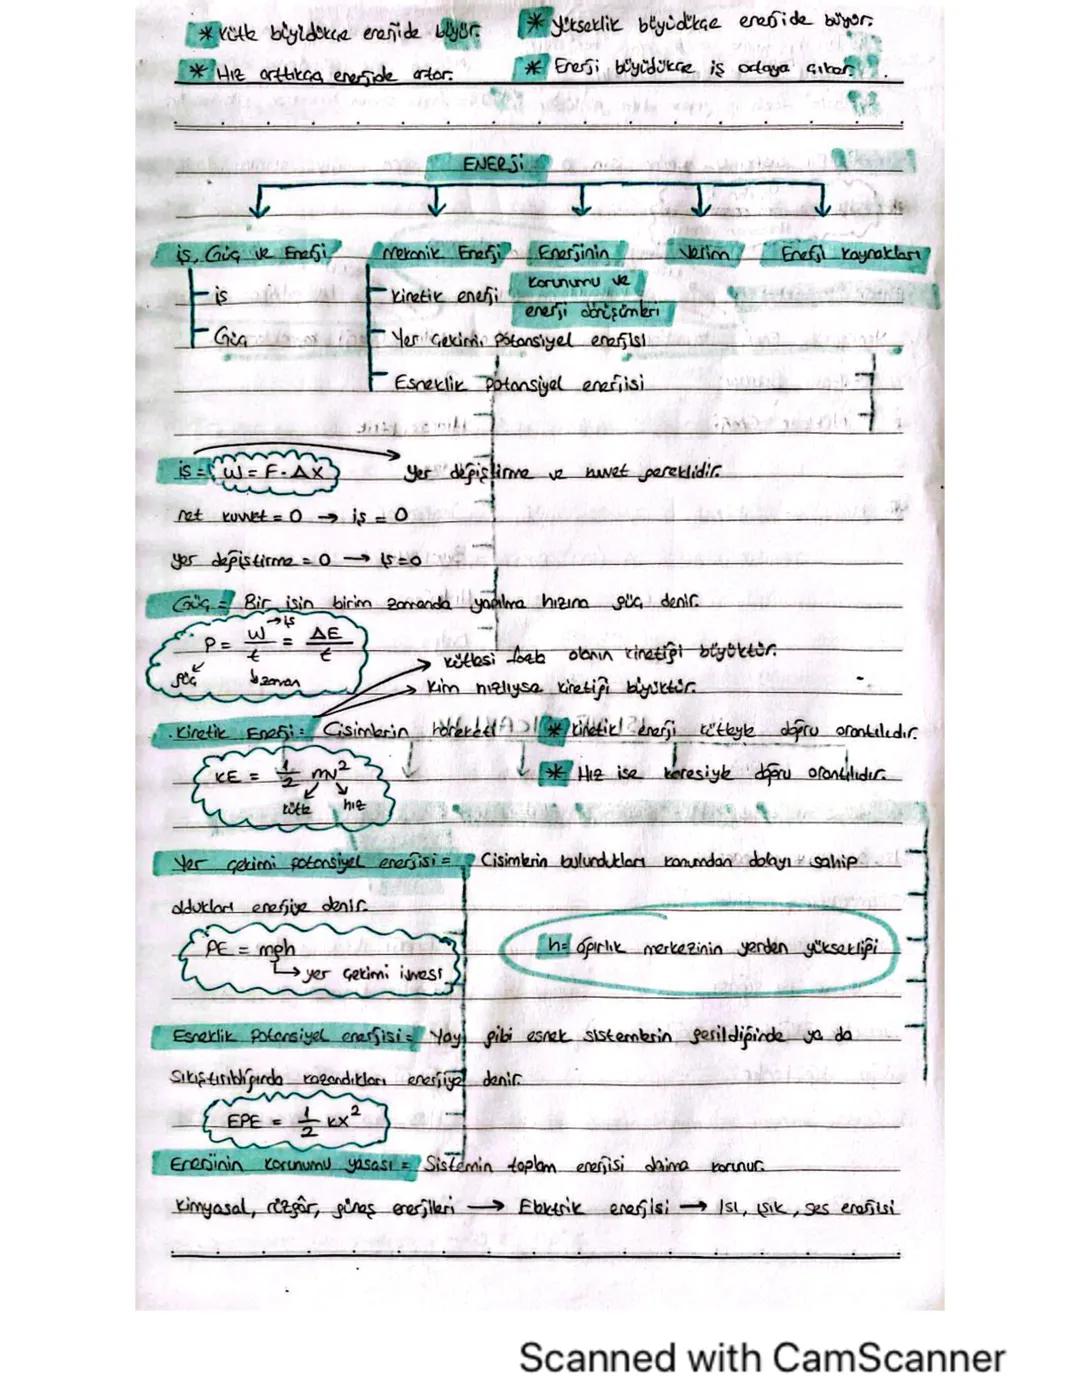 * Kütle büyüdükçe enerjide büyür.
* yükseklik büyüdükçe enerjide büyür.
* Hız arttıkça enerjide artar.
* Enerji büyüdükçe iş ortaya çıkar.
ENERJİ
iş, Güç ve Enerji
Mekanik Enerji
Enerjinin korunumu ve enerji dönüşümleri
Verim
Enerji kaynakları
iş
Güç
kinetik enerji
Yer çekimi potansiyel enerjisi
Esneklik potansiyel enerjisi
iş = W = F · ΔX → yer değiştirme ve kuvvet gereklidir.
net kuvvet = 0 → iş = 0
yer değiştirme = 0 → iş = 0
Güç = Bir işin birim zamanda yapılma hızına güç denir.
P = W/t = ΔE/t
→ iş
güç
zaman
→ kütlesi fazla olanın kinetiği büyüktür.
→ kim hızlıysa kinetiği büyüktür.
Kinetik Enerji = Cisimlerin hareketi
* kinetik enerji kütleyle doğru orantılıdır.
KE = 1/2 mv²
kütle hız
* Hız ise karesiyle doğru orantılıdır.
Yer çekimi potansiyel enerjisi = Cisimlerin bulundukları konumdan dolayı sahip
oldukları enerjiye denir.
PE = mgh
→ yer çekimi ivmesi
h = ağırlık merkezinin yerden yüksekliği
Esneklik potansiyel enerjisi = Yay gibi esnek sistemlerin gerildiğinde ya da
sıkıştırıldığında kazandıkları enerjiye denir.
EPE = 1/2 kx²
Enerjinin korunumu yasası = Sistemin toplam enerjisi daima korunur.
Kimyasal, rüzgâr, güneş enerjileri → Elektrik enerjisi → Isı, ışık, ses enerjisi
Scanned with CamScanner